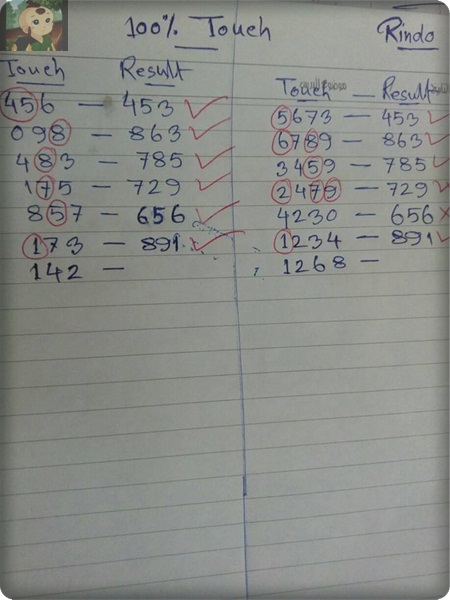 100% Touch
Rindo
Touch Result
456 — 453
098 — 863
483 — 785
175 — 729
857 — 656
173 — 891
142 —
Touch — Result
5673 — 453
6789 — 863
3459 — 785
2479 — 729
4230 — 656
1234 — 891
1268 —